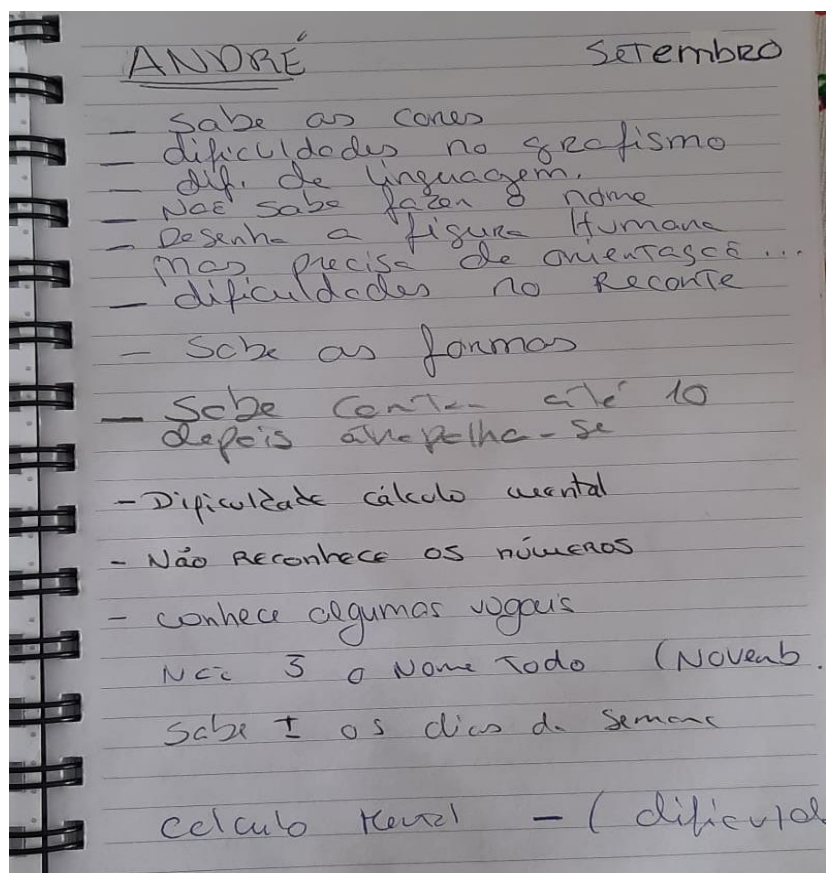 ANDRÉ Setembro
- Sabe as cores
- dificuldades no grafismo
- dif. de linguagem.
- Não sabe fazer o nome
- Desenha a figura Humana
mas precisa de orientação...
- dificuldades no Reconte
- Sabe as formas
- Sabe contar até 10
depois atrapalha-se
- Dificuldade cálculo mental
- Não Reconhece os números
- conhece algumas vogais
Não o Nome Todo (Novemb.
Sabe ± os dias da Semana
Calculo Mental - (dificuld